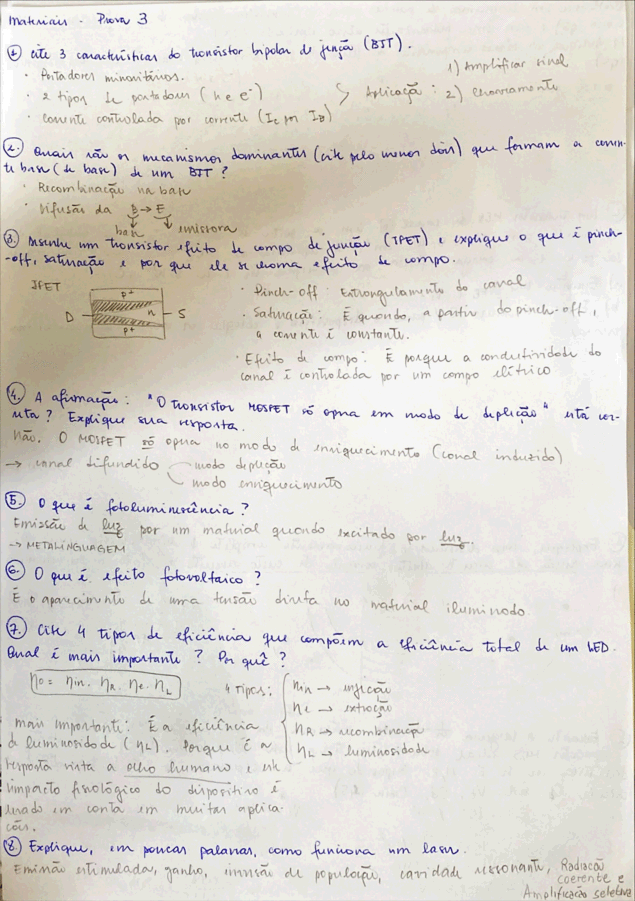 Materiais - Prova 3
1. Cite 3 características do transistor bipolar de junção (BJT).
· Portadores minoritários.
· 2 tipos de portadores (h e e⁻)
· corrente controlada por corrente (Ic por IB)
Aplicação: 1) Amplificar sinal
2) Chaveamento
2. Quais são os mecanismos dominantes (cite pelo menos dois) que formam a corren-
te base (de base) de um BJT?
· Recombinação na base
· Difusão da B → E
base emissora
3. Desenhe um transistor efeito de campo de junção (JFET) e explique o que é pinch-
-off, saturação e por que ele se chama efeito de campo.
JFET
p+
D n S
p+
· Pinch-off: Estrangulamento do canal
· Saturação: É quando, a partir do pinch-off,
a corrente é constante.
· Efeito de campo: É porque a condutividade do
canal é controlada por um campo elétrico
4. A afirmação: "O transistor MOSFET só opera em modo de depleção" está cor-
reta? Explique sua resposta.
Não. O MOSFET só opera no modo de enriquecimento (canal induzido)
→ canal difundido modo depleção
modo enriquecimento
5. O que é fotoluminescência?
Emissão de luz por um material quando excitado por luz.
→ METALINGUAGEM
6. O que é efeito fotovoltaico?
É o aparecimento de uma tensão direta no material iluminado.
7. Cite 4 tipos de eficiência que compõem a eficiência total de um LED.
Qual é mais importante? Por quê?
ηo = ηin. ηR. ηe. ηL
4 tipos: ηin → injeção
ηe → extração
ηR → recombinação
ηL → luminosidade
mais importante: É a eficiência
de luminosidade (ηL). Porque é a
resposta vista a olho humano e esse
impacto fisiológico do dispositivo é
levado em conta em muitas aplica-
ções.
8. Explique, em poucas palavras, como funciona um laser.
Emissão estimulada, ganho, inversão de população, cavidade ressonante, Radiação
coerente e
Amplificação seletiva